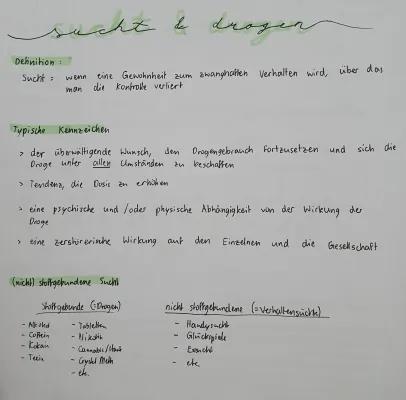 sucht & drogen
Definition:
Sucht: wenn eine Gewohnheit zum zwanghaften Verhalten wird, über das
man die Kontrolle verliert
Typische Kennzeichen
> der überwältigende Wunsch, den Drogengebrauch fortzusetzen und sich die
Droge unter allen Umständen zu beschaffen
> Tendenz, die Dosis zu erhöhen
> eine psychische und/oder physische Abhängigkeit von der Wirkung der
Droge
> eine zerstörerische Wirkung auf den Einzelnen und die Gesellschaft
(nicht) stoffgebundene Sucht
Stoffgebunde (=Drogen)
- Alkohol
- Coffein
- Kokain
- Tein
- Tabletten
- Nikotin
- Cannabis/
- Crystal Meth
- etc.
nicht stoffgebundene (=Verhaltenssucht)
- Handysucht
- Glücksspiele
- Esssucht
- etc.